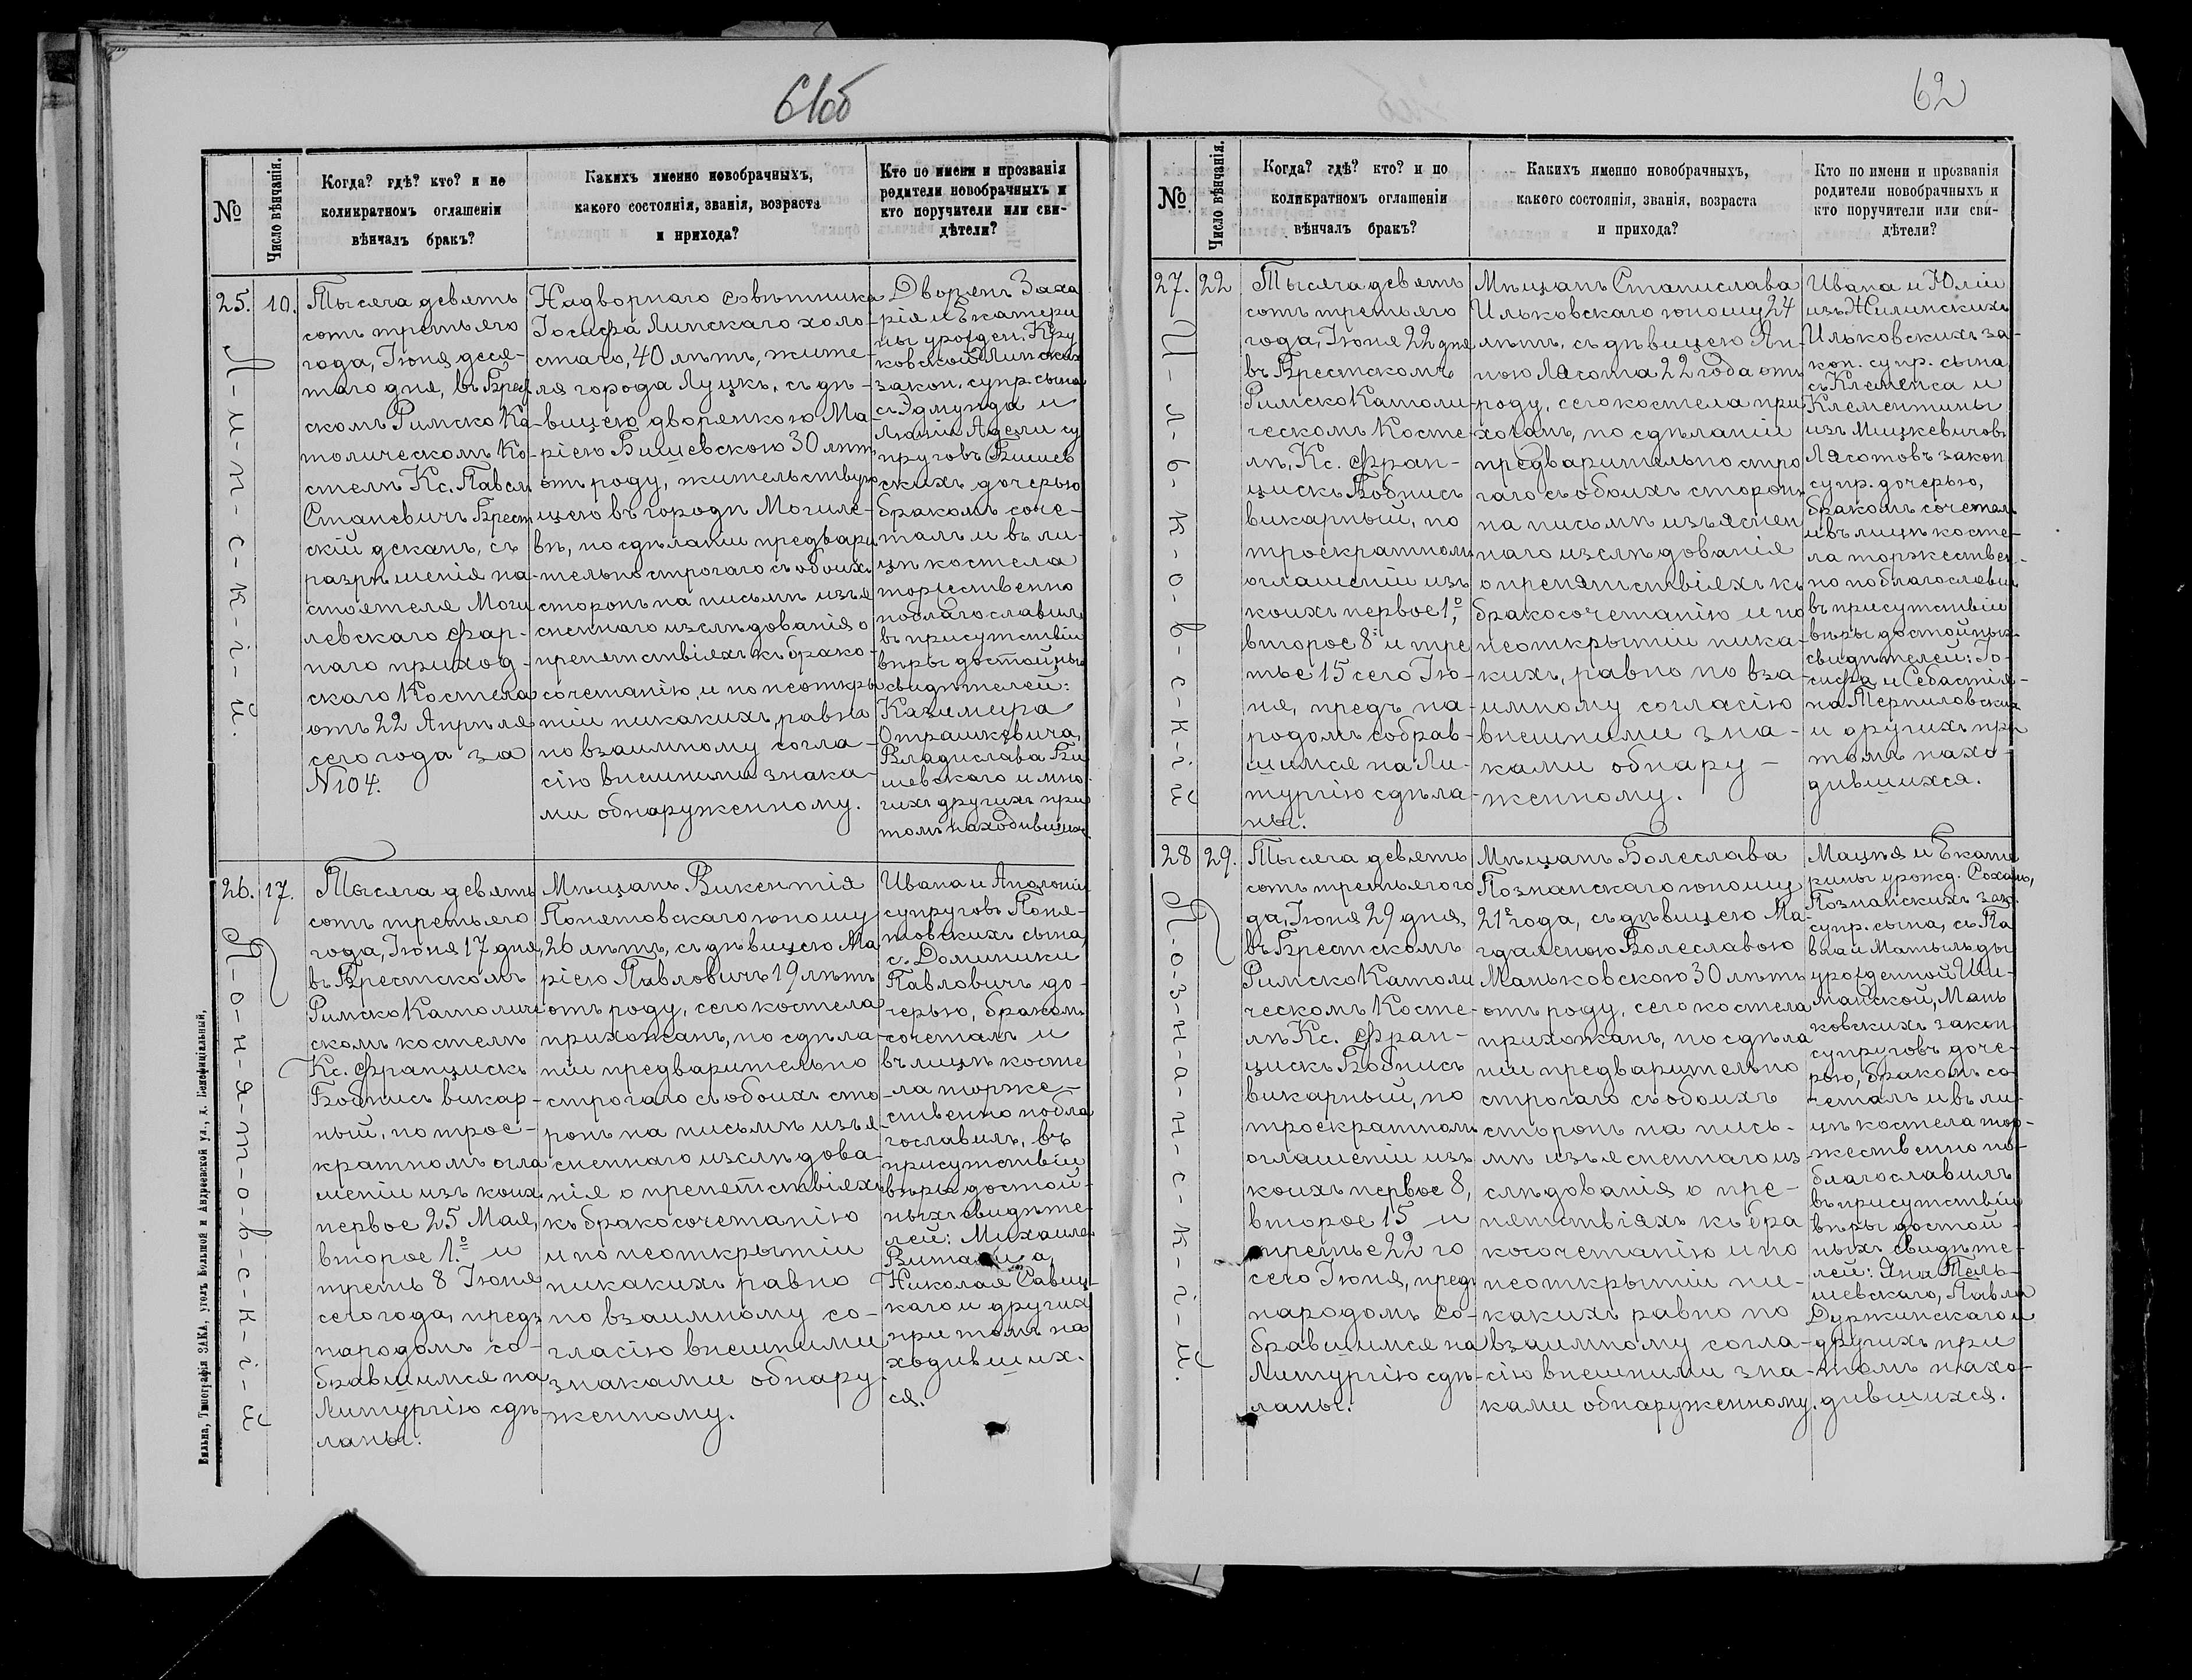 61об
№
Число вѣнчанія.
Когда? гдѣ? кто? и по
коликратномъ оглашеніи
вѣнчалъ бракъ?
Какихъ именно новобрачныхъ,
какого состоянія, званія, возраста
и прихода?
Кто по имени и прозванія
родители новобрачныхъ и
кто поручители или сви-
дѣтели?
25.
Л-и-п-с-к-і-й.
10.
Тысяча девять
сотъ третьяго
года, Іюня деся-
таго дня, въ Брест
скомъ Римско Ка
толическомъ Ко
стелѣ Кс. Павелъ
Станевичъ Брест
скій деканъ, съ
разрѣшенія на-
стоятеля Моги
левскаго фар-
наго приход-
скаго Костела
отъ 22 Апрѣля
сего года за
N 104.
Надворнаго совѣтника
Іосифа Липскаго холо-
стаго, 40 лѣтъ, жите-
ля города Луцкъ, съ дѣ-
вицею дворянкою Ма-
ріею Бишевскою 30 лѣтъ
отъ роду, жительствую
щею въ городѣ Могиле-
вѣ, по сдѣланіи предвари
тельно строгаго съ обоихъ
сторонъ на письмѣ изъя
сненнаго изслѣдованія о
препятствіяхъ къ брако-
сочетанію, и по неоткры
тіи никакихъ, равно
по взаимному согла-
сію внешними знака-
ми обнаруженному.
Дворянъ Заха
рія и Екатери
ны урожден. Кру
ковской Липскихъ
закон. супр. сына
съ Эдмунда и
Люціи Адели су
пруговъ Бишев
скихъ дочерью
бракомъ соче-
талъ и въ ли-
цѣ костела
торжественно
поблагославилъ
въ присутствіи
вѣры достойныхъ
свидѣтелей:
Казимира
Отрашкевича,
Владислава Би
шевскаго и мно
гихъ другихъ при
томъ находившихся.
26.
П-о-н-я-т-о-в-с-к-і-й
17.
Тысяча девять
сотъ третьяго
года, Іюня 17 дня,
въ Брестскомъ
Римско Католиче
скомъ костелѣ
Кс. Францискъ
Бобнисъ викар-
ный, по трое-
кратномъ огла
шеніи изъ коихъ
первое 25 Мая,
второе 1º и
треть 8 Іюня
сего года, предъ
народомъ со-
бравшимся на
Литургію сдѣ
ланы.
Мѣщанъ Викентія
Понятовскаго юношу
26 лѣтъ, съ дѣвицею Ма
ріею Павловичъ 19 лѣтъ
отъ роду, сего костела
прихожанъ, по сдѣла-
ніи предварительно
строгаго съ обоихъ сто
ронъ на письмѣ изъя
сненнаго изслѣдова-
нія о препятствіяхъ
къ бракосочетанію
и по неоткрытіи
никакихъ равно
по взаимному со-
гласію внешними
знаками обнару
женному.
Ивана и Аполоніи
супруговъ Поня-
товскихъ сына,
с. Доминики
Павловичъ до-
черью, бракомъ
сочеталъ и
въ лицѣ косте
ла торже-
ственно побла
гославилъ, въ
присутствіи
вѣры достой-
ныхъ свидѣте-
лей: Михаила
Николая Савиц-
каго и другихъ
при томъ на
ходивших-
ся.
Вильна, Типографія ЗАКА, уголъ Большой и Андреевской ул., д. Бенефиціальный,
62
№
Число вѣнчанія.
Когда? гдѣ? кто? и по
коликратномъ оглашеніи
вѣнчалъ бракъ?
Какихъ именно новобрачныхъ,
какого состоянія, званія, возраста
и прихода?
Кто по имени и прозванія
родители новобрачныхъ и
кто поручители или сви-
дѣтели?
27.
И-л-ь-к-о-в-с-к-і-й
22
Тысяча девять
сотъ третьяго
года, Іюня 22 дня
въ Брестскомъ
Римско Католи-
ческомъ Косте-
лѣ, Кс. Фран-
цискъ Бобнисъ
викарный, по
троекратномъ
оглашеніи изъ
коихъ первое 1º,
второе 8 и тре
тье 15 сего Ію-
ня, предъ на-
родомъ собрав-
шимся на Ли-
тургію сдѣла-
ны.
Мѣщанъ Станислава
Ильковскаго юношу 24
лѣтъ, съ дѣвицею Ан-
ною Лясота 22 года отъ
роду, сего костела при
хожанъ, по сдѣланіи
предварительно стро
гаго съ обоихъ сторонъ
на письмѣ изъяснен
наго изслѣдованія
о препятствіяхъ къ
бракосочетанію и по
неоткрытіи ника-
кихъ, равно по вза-
имному согласію
внешними зна-
ками обнару-
женному.
Ивана и Юліи
изъ Жилинскихъ
Ильковскихъ за-
кон. супр. сына
съ Клеменса и
Клементины
изъ Мицкевичовъ
Лясотовъ закон
супр. дочерью,
бракомъ сочеталъ
и въ лицѣ косте-
ла торжествен-
но поблагославилъ
въ присутствіи
вѣры достойныхъ
свидѣтелей: Іо-
сифа и Себастія-
на Терпиловскихъ
и другихъ при
томъ нахо-
дившихся.
28
П-о-з-н-а-н-с-к-і-й.
29.
Тысяча девять
сотъ третьяго го
да, Іюня 29 дня,
въ Брестскомъ
Римско Католи
ческомъ Косте-
лѣ Кс. Фран-
цискъ Бобнисъ
викарный, по
троекратномъ
оглашеніи изъ
коихъ первое 8,
второе 15 и
третье 22 го
сего Іюня, предъ
народомъ со-
бравшимся на
Литургію сдѣ-
ланы.
Мѣщанъ Болеслава
Познанскаго юношу
21 года, съ дѣвицею Ма-
гдаленою Болеславою
Маньковскою 30 лѣтъ
отъ роду, сего костела
прихожанъ, по сдѣла
ніи предварительно
строгаго съ обоихъ
сторонъ на пись-
мѣ изъясненнаго из
слѣдованія о пре-
пятствіяхъ къ бра
косочетанію и по
неоткрытіи ни-
какихъ равно по
взаимному согла-
сію внешними зна-
ками обнаруженному.
Мацѣя и Екате
рины урожд. Сохань,
Познанскихъ зак.
супр. сына, съ Па
вла и Матыльды
урожденной Ши-
манской, Мань
ковскихъ закон.
супруговъ доче-
рью, бракомъ со-
четалъ и въ ли-
цѣ костела тор-
жественно по-
благославилъ
въ присутствіи
вѣры достой-
ныхъ свидѣте-
лей: Яна Тель-
шевскаго, Павла
Дуржинскаго и
другихъ при
томъ нахо-
дившихся.